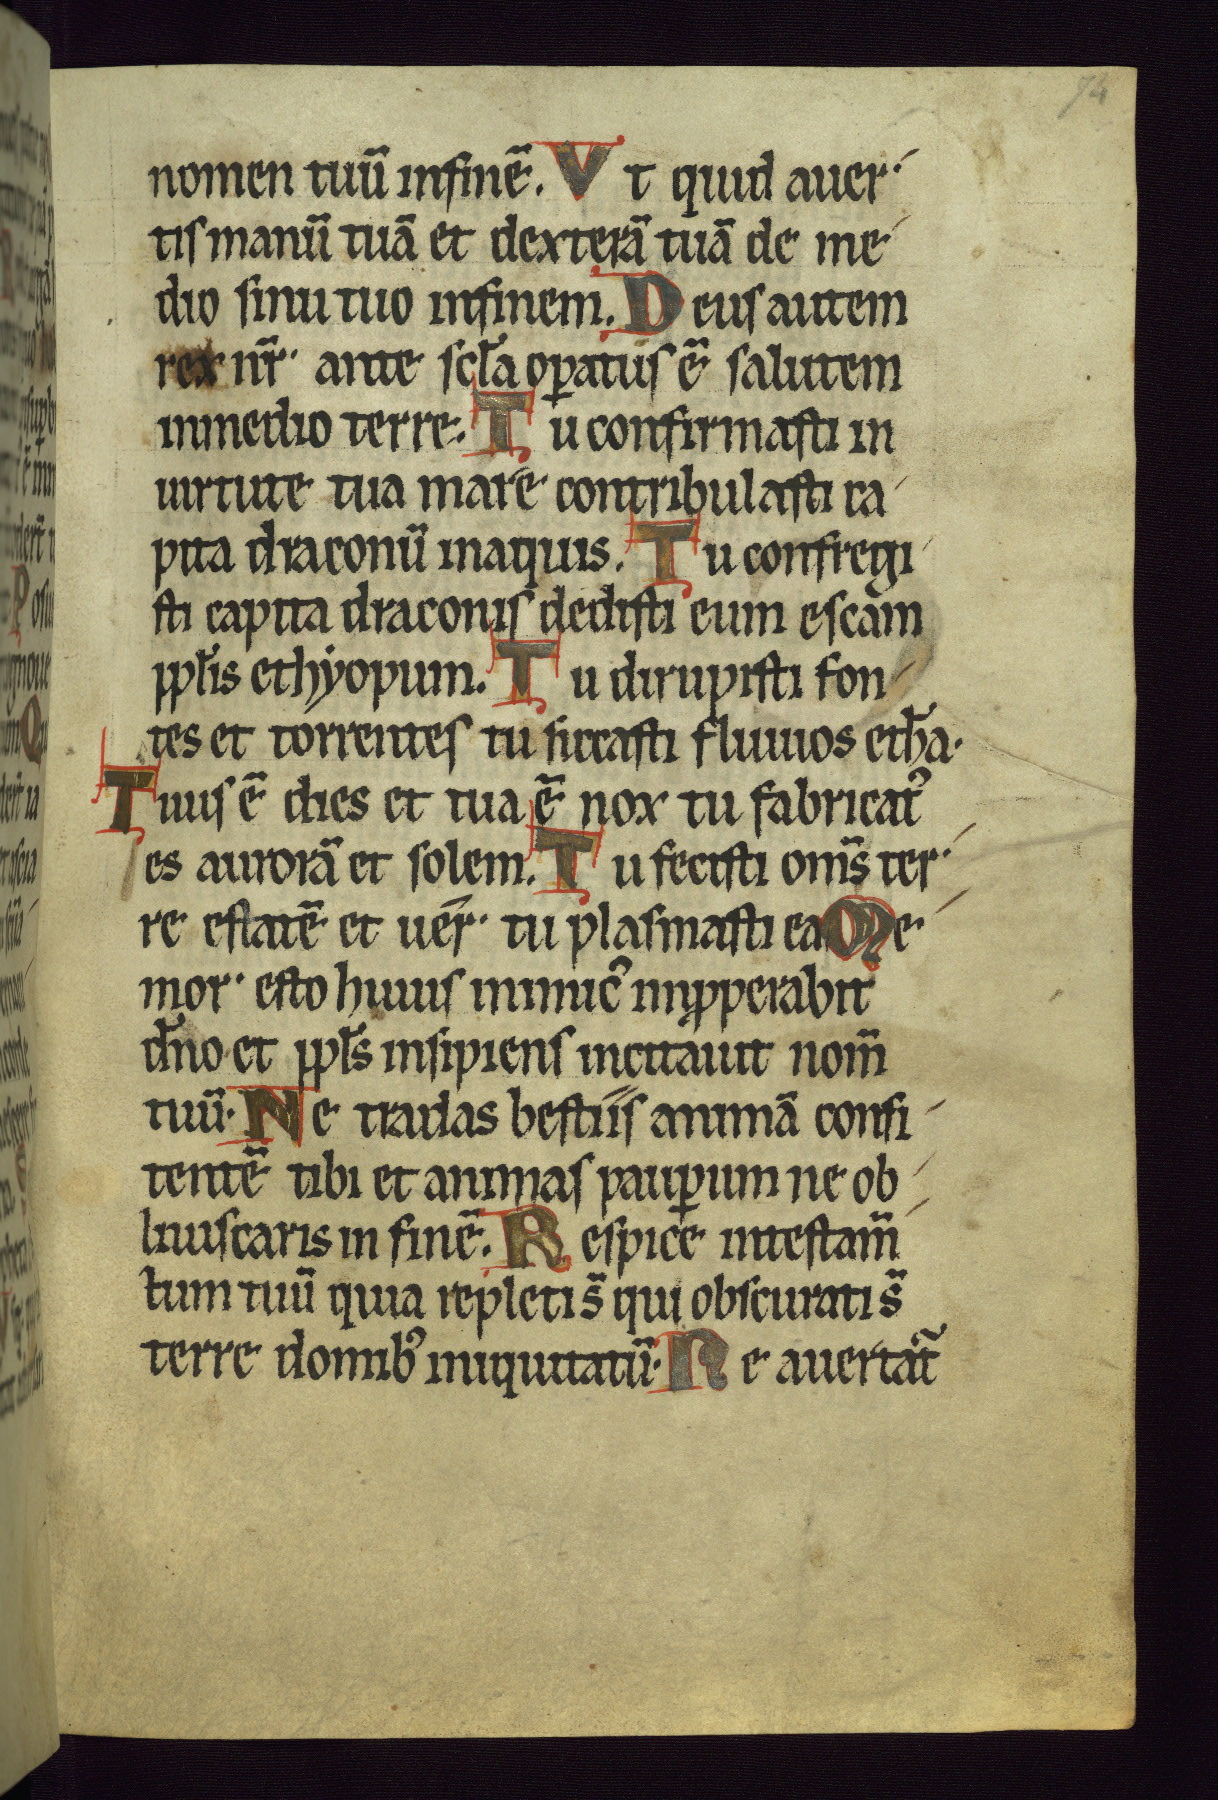 74
nomen tuū infinē. Vt quid auer
tis manū tuā et dexterā tuā de me
dio sinu tuo infinem. Deus autem
rex nr̄ ante scl̄a oꝑatus ē salutem
inmedio terre. Tu confirmasti in
uirtute tua mare contribulasti ca
pita draconū inaquis. Tu confregi
sti capita draconis dedisti eum escam
ppl̄is ethyopum. Tu dirupisti fon
tes et torrentes tu siccasti fluuios eth̄a.
Tuus ē dies et tua ē nox tu fabricatꝰ
es aurorā et solem. Tu fecisti om̄s ter
re estatē et uer̄ tu plasmasti ea Me
mor esto huius inimicꝰ inꝓperabit
dn̄o et ppl̄s insipiens incitauit nom̄
tuū. Ne tradas bestiis animā confi
tentē tibi et animas pauꝑum ne ob
liuiscaris in finē. Respice intestam̄
tum tuū quia repleti s̄ qui obscurati s̄
terre domibꝰ iniquitatū. Ne auertat᷑